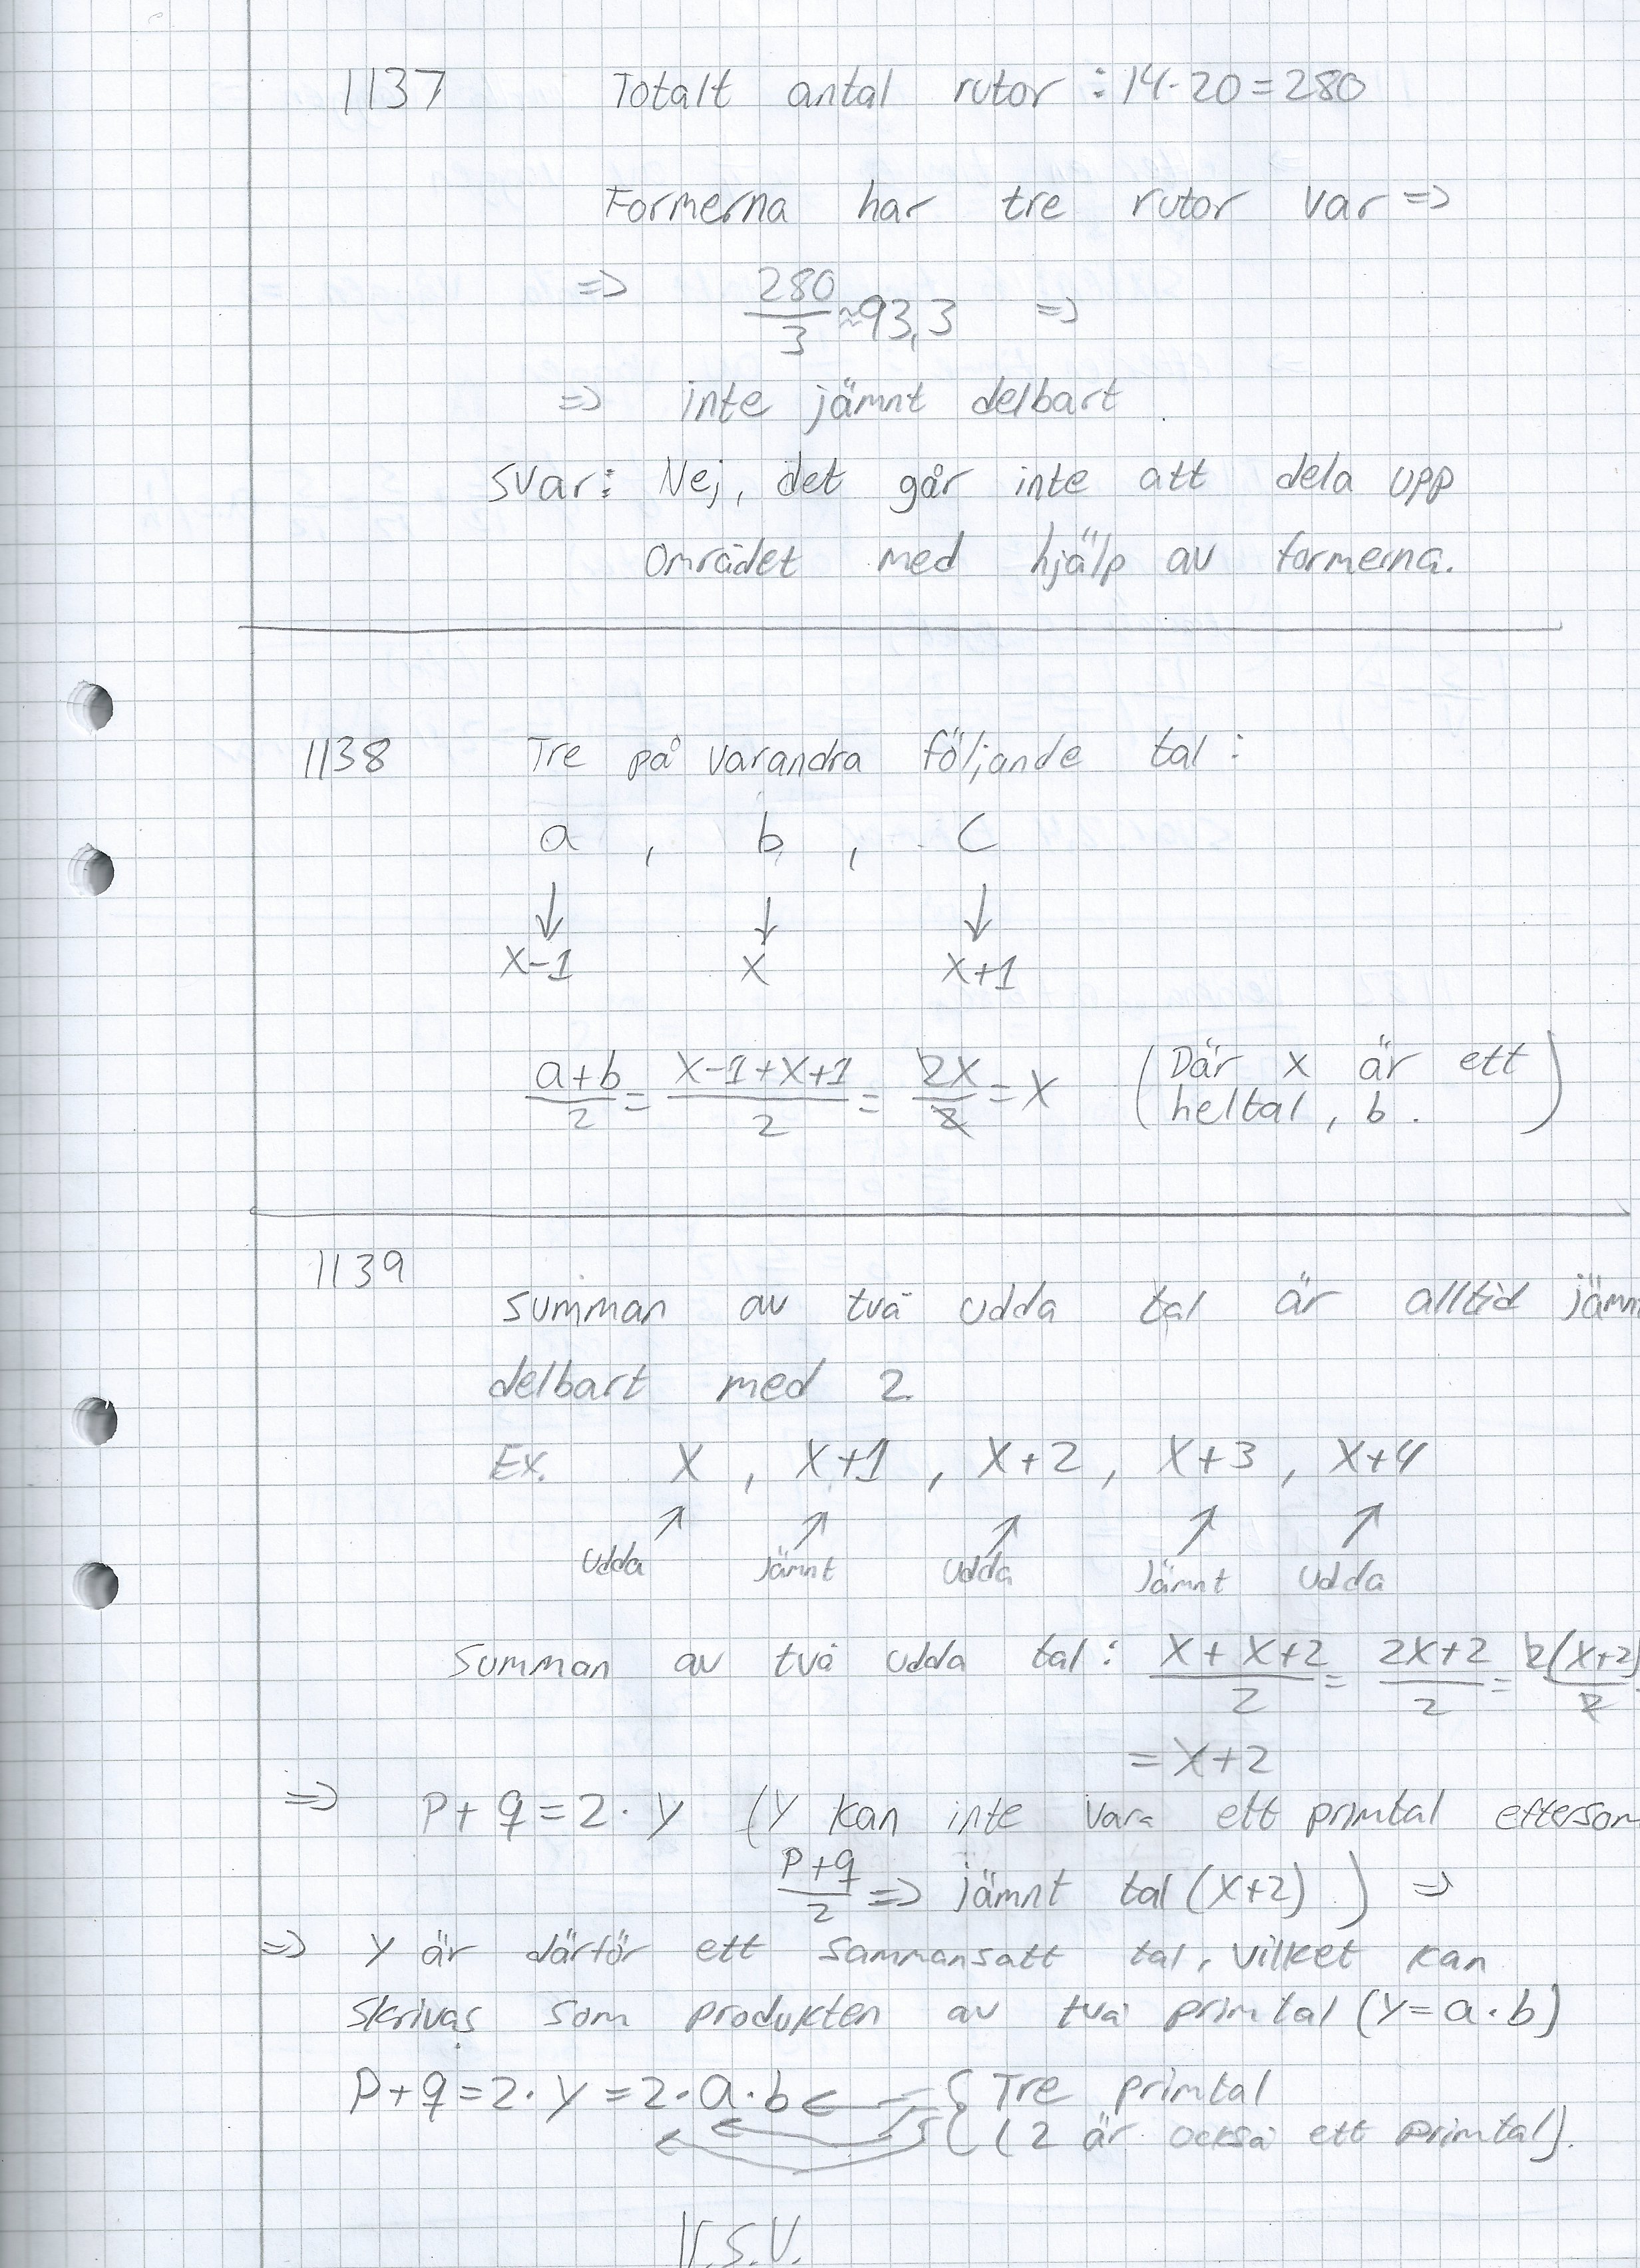 1137 Totalt antal rutor : 14·20=280
Formerna har tre rutor var =>
=> 280/3 ≈93,3 =>
=> inte jämnt delbart
Svar: Nej, det går inte att dela upp
Området med hjälp av formerna.
1138 Tre på varandra följande tal:
a , b , c
↓ ↓ ↓
x-1 x x+1
a+b/2 = x-1+x+1/2 = 2x/2 = x (Där x är ett
heltal, b.)
1139
Summan av två udda tal är alltid jämn
delbart med 2
Ex. x , x+1 , x+2 , x+3 , x+4
↗ ↗ ↗ ↗ ↗
Udda Jämnt Udda Jämnt Udda
Summan av två udda tal: x+x+2/2 = 2x+2/2 = 2(x+2)/2
= x+2
=> p+q=2·y (y kan inte vara ett primtal eftersom
p+q/2 => jämnt tal (x+2) ) =>
=> y är därför ett sammansatt tal, vilket kan
skrivas som produkten av två primtal (y=a·b)
p+q=2·y=2·a·b ← { Tre primtal
(2 är också ett primtal).
V.S.V.